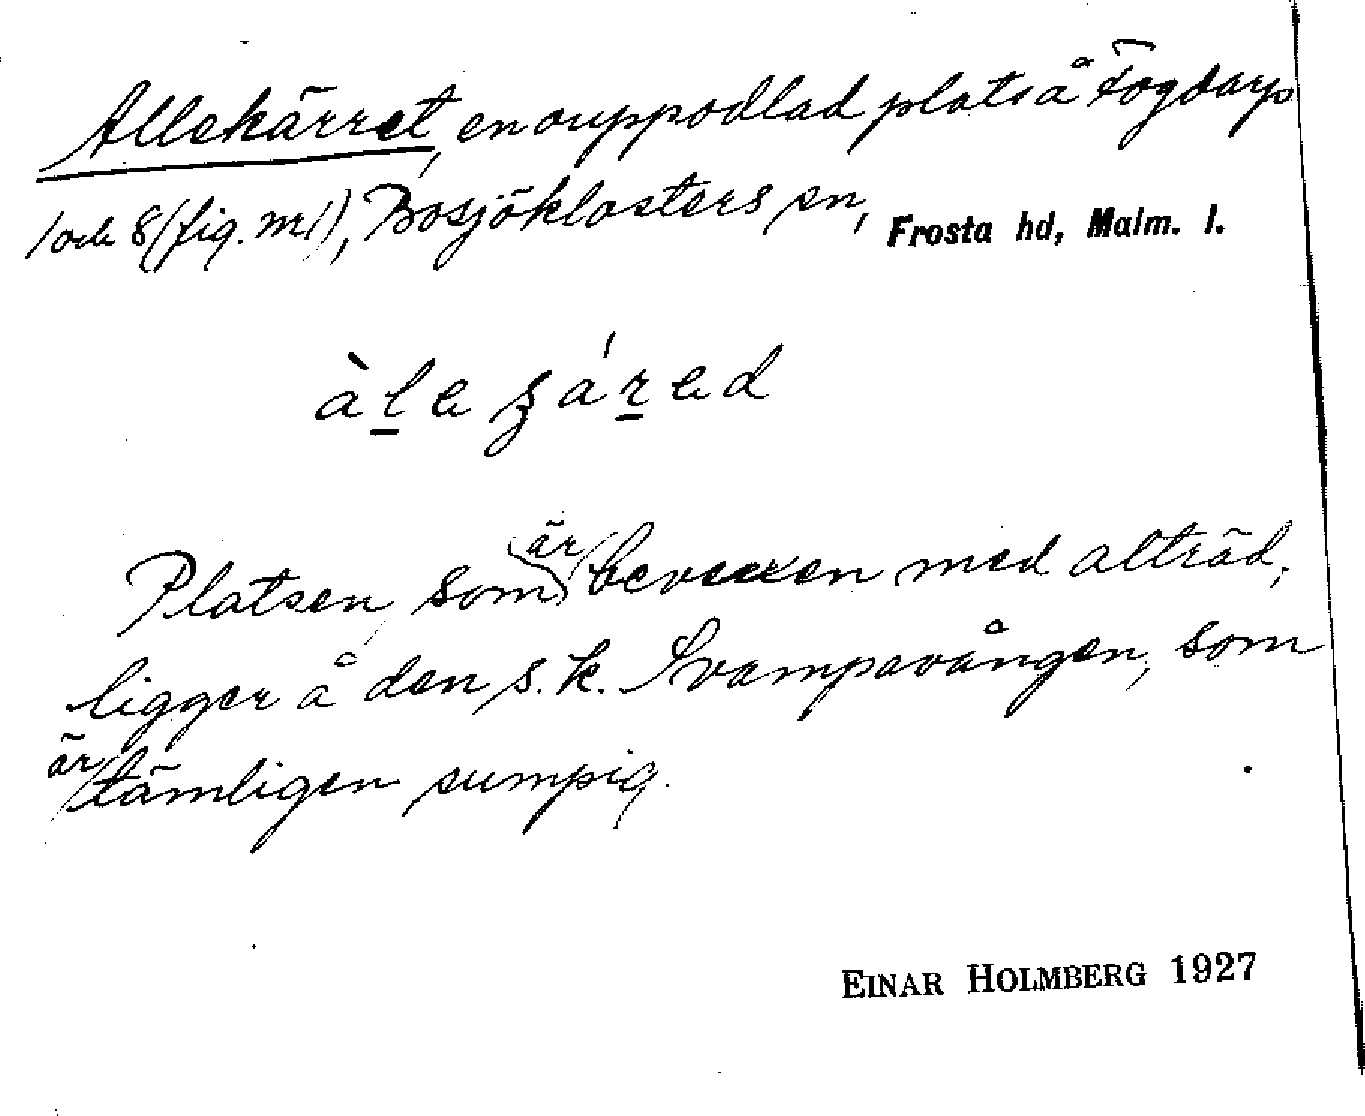 Allekärret, en ouppodlad plats å Fogdarp
1 och 8 (fig. nr 1), Bosjöklosters sn, Frosta hd, Malm. l.
àle ʒáred
Platsen, som är bevuxen med alträd,
ligger å den s.k. Svampavången, som
är tämligen sumpig.
EINAR HOLMBERG 1927